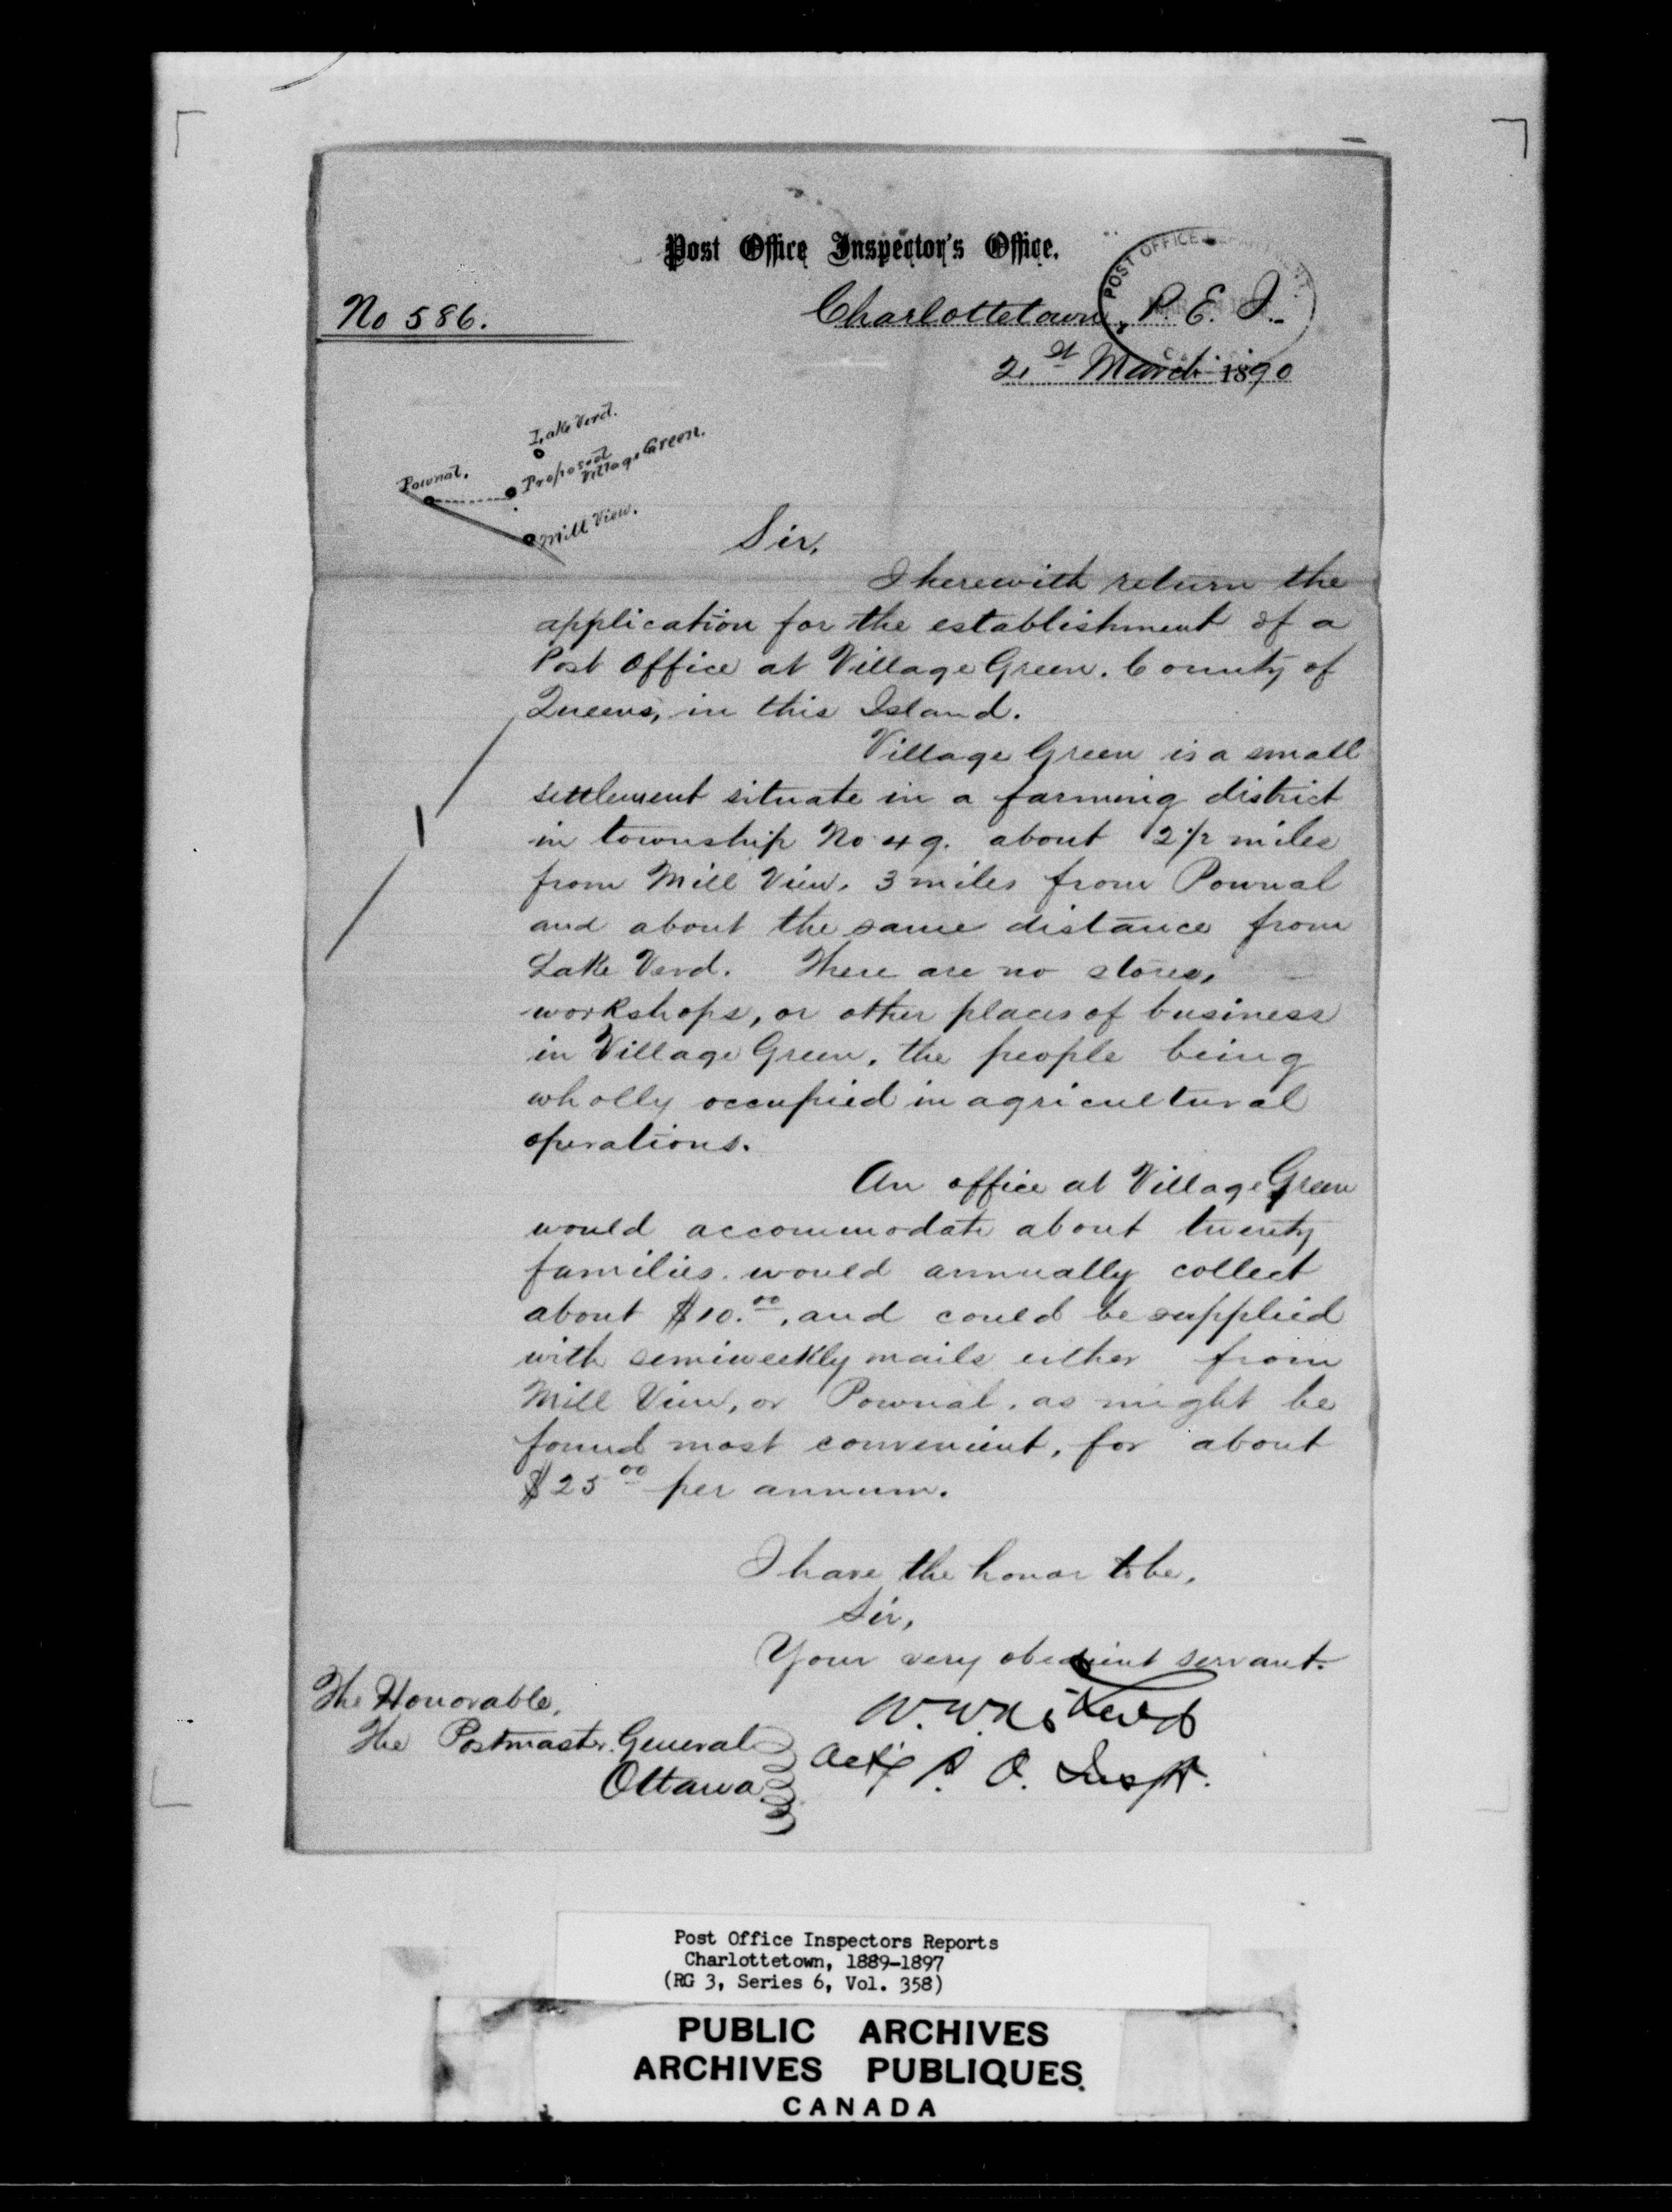 Post Office Inspector's Office.
No 586.
Charlottetown, P. E. I.
POST OFFICE
21st March 1890
Lake Verd.
Proposed
Village Green.
Pownal.
Mill View.
Sir,
I herewith return the
application for the establishment of a
Post Office at Village Green. County of
Queens, in this Island.
Village Green is a small
settlement situate in a farming district
in township No 49. about 2 1/2 miles
from Mill View, 3 miles from Pownal
and about the same distance from
Lake Verd. There are no stores,
workshops, or other places of business
in Village Green, the people being
wholly occupied in agricultural
operations.
An office at Village Green
would accommodate about twenty
families. would annually collect
about $10.00, and could be supplied
with semiweekly mails either from
Mill View, or Pownal, as might be
found most convenient, for about
$25 00 per annum.
I have the honor to be,
Sir,
Your very obedient servant.
The Honorable,
The Postmaster General
Ottawa
W. W.
Actg P. O. Inspr.
Post Office Inspectors Reports
Charlottetown, 1889-1897
(RG 3, Series 6, Vol. 358)
PUBLIC ARCHIVES
ARCHIVES PUBLIQUES
CANADA